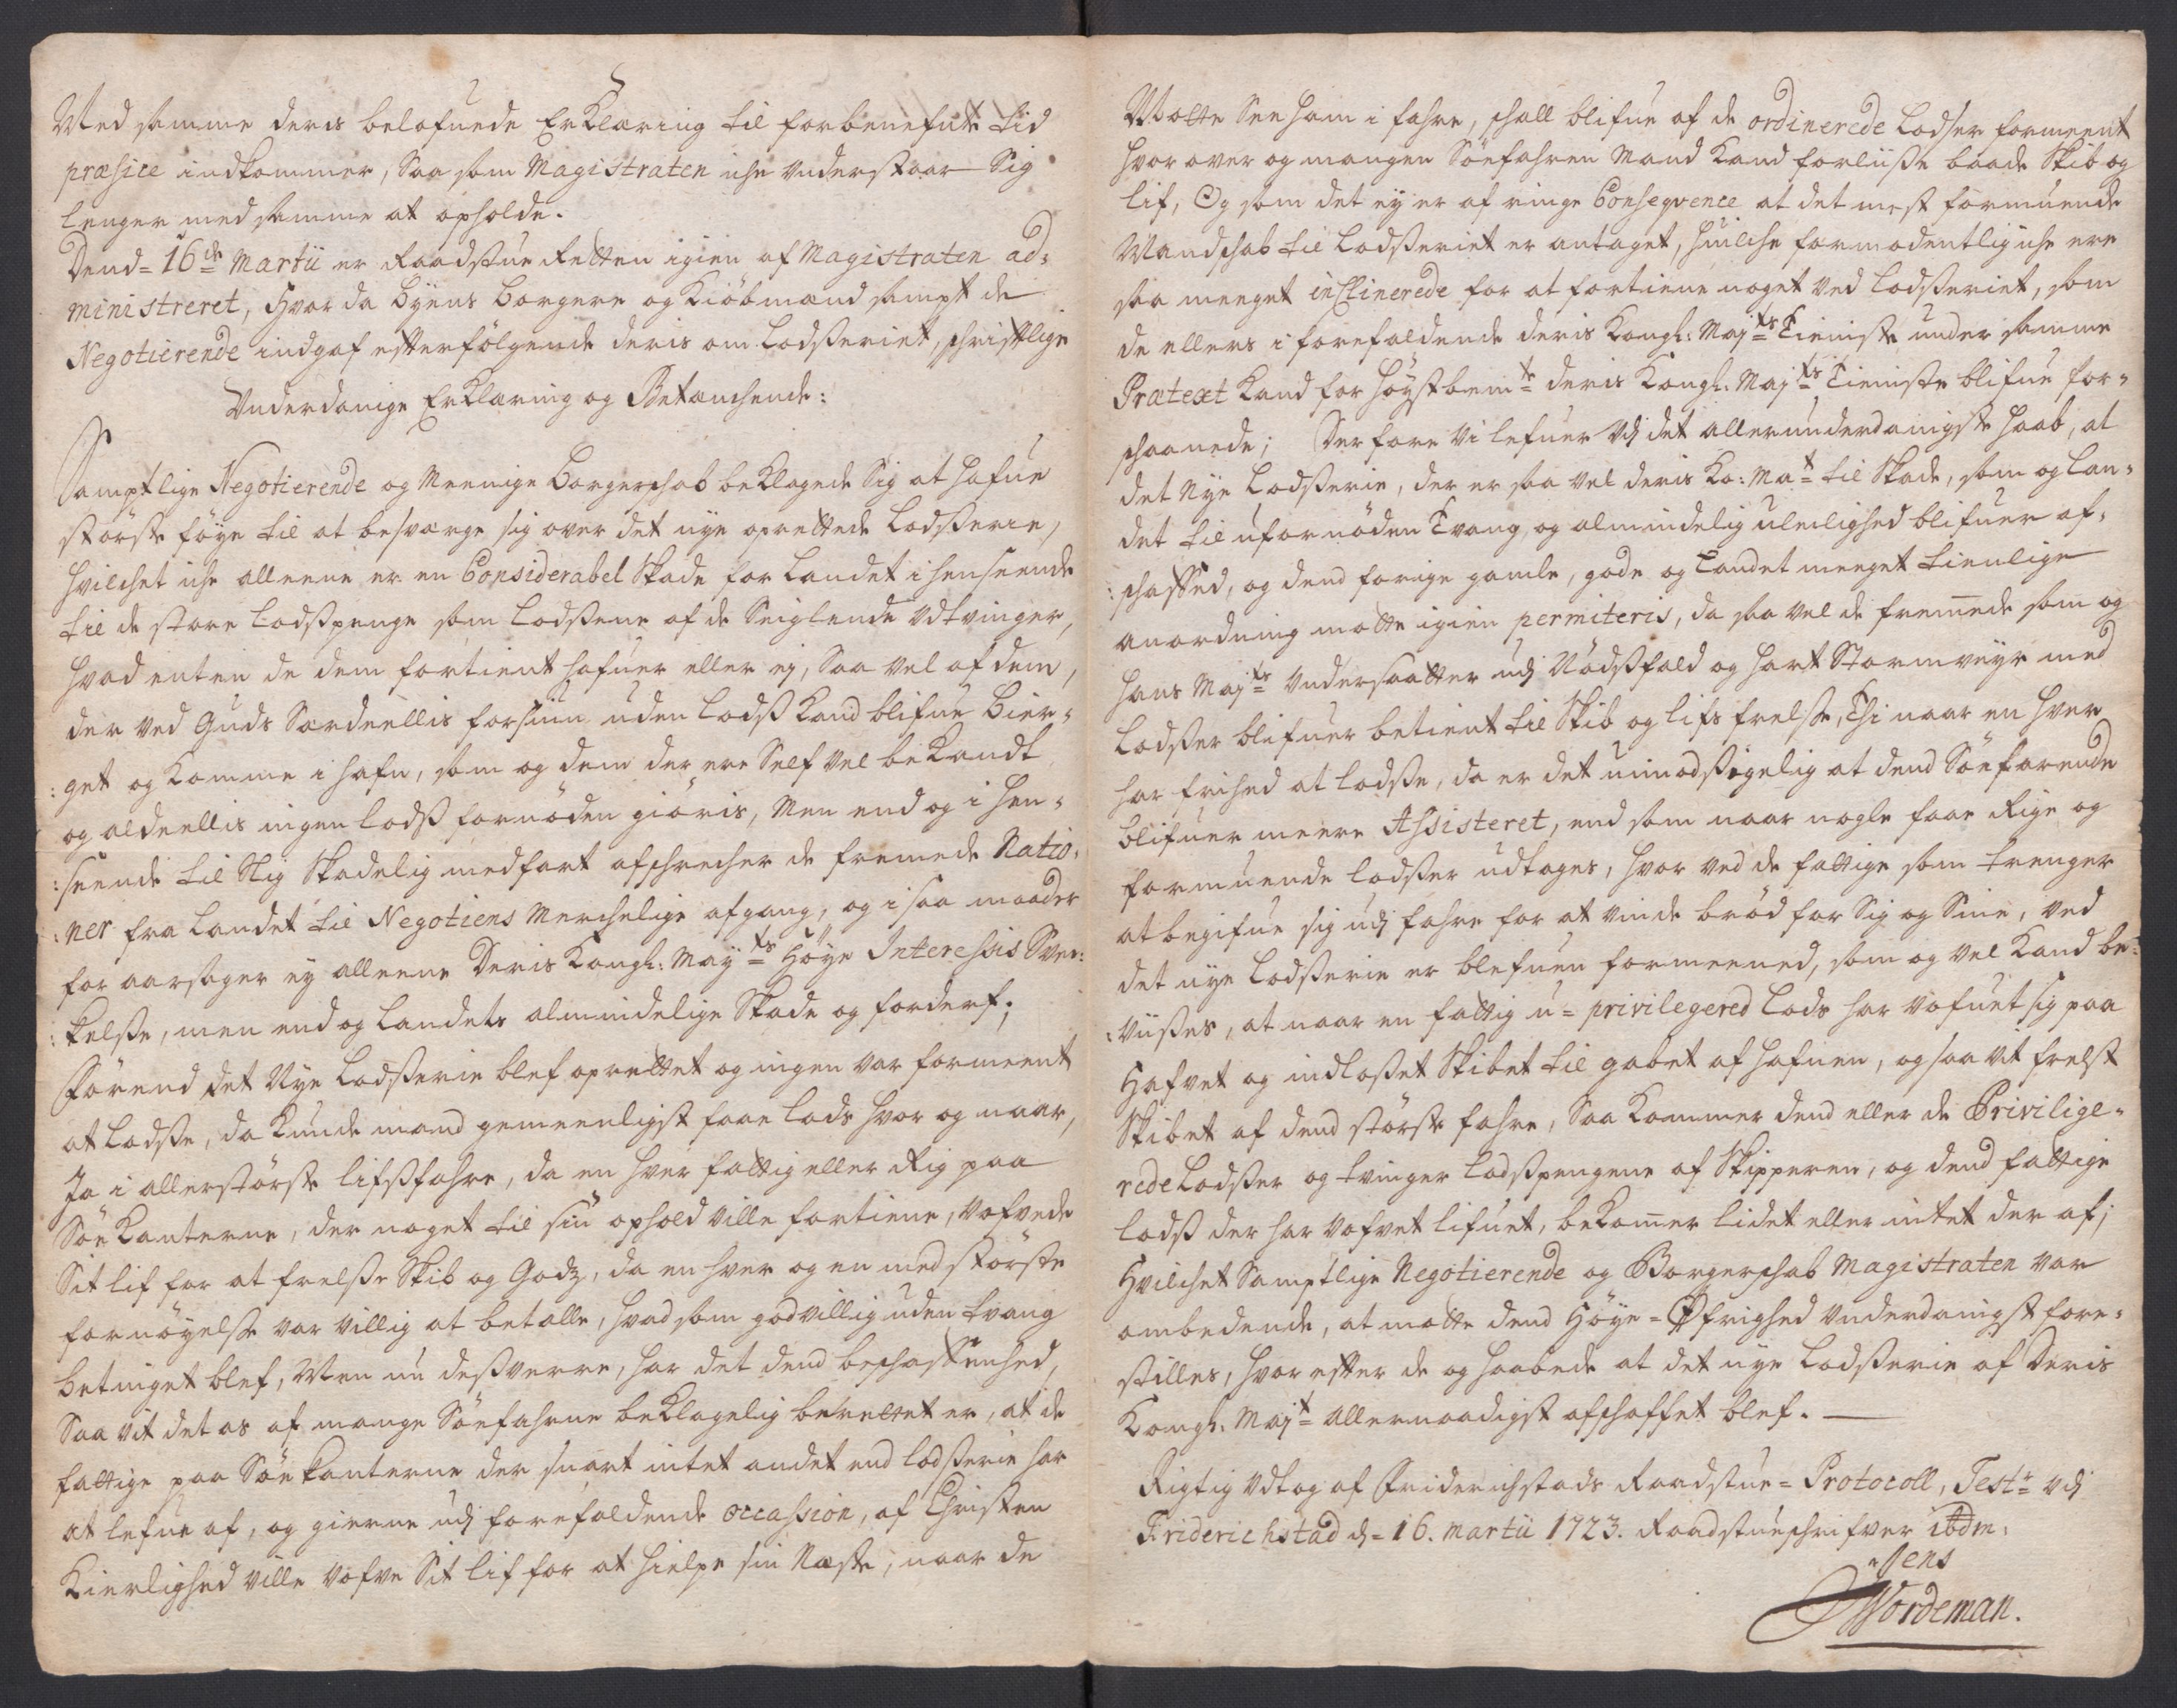 Med samme deris belofuede Erklæring til forbenefnte tid
præsice indkommer, Saa som Magistraten iche Understaar Sig
lenger med samme at opholde.
Dend = 16de Martii er Raadstue Retten igien af Magistraten ad=
ministreret, Hvor da Byens Borgere og Kiöbmænd sampt de
Negotierende indgaf efterfölgende deris om Lodsseriet, schriftlige
Underdanige Erklæring og Betænchende:
Samptlige Negotierende og Meenige Borgerschab beklagede Sig at hafue
störste föye til at besværge sig over det nye oprettede Lodsserie,
hvilchet iche alleene er en Considerabel Skade for Landet i henseende
til de store Lodsspenge som Lodssene af de Seiglende Udtvinger,
hvad enten de dem fortient hafuer eller ej, Saa vel af dem,
der ved Guds Særdeellis forsiun uden Lodss kand blifue Bier=
:get og komme i hafn, som og dem der ere Self vel bekandt
og aldeellis ingen Lodss fornöden giöris, Men end og i hen=
:seende til Slig Skadelig medfart afschrecher de fremede Natio:
:ner fra Landet til Negotiens Merchelige afgang, og i saa maader
foraarsager ey alleene Deris Kongl: Mayts Höye Interessis Svec:
:kelsse, men end og Landets almindelige Skade og forderf;
Förend det Nye Lodsserie blef oprettet og ingen var formeent
at Lodsse, da kunde mand gemeenligst faae Lods hvor og naar,
Ja i allerstörste lifssfahre, da en hver fattig eller Rig paa
Söe Kanterne, der noget til sin ophold ville fortiene, Vofvede
Sit lif for at frelsse Skib og Godz, da en hver og en med störste
fornöyelsse var villig at betalle, hvad som godvillig uden tvang
betinget blef, Men nu dessverre, har det dend beschaffenhed,
Saa vit det os af mange Söefahrne beklagelig berettet er, at de
fattige paa Söekanterne der snart intet andet end Lodsserie har
at lefue af, og gierne udj forefaldende occassion, af Christen
Kierlighed ville Vofve Sit lif for at hielpe sin Næste, naar de
Motte See ham i fahre, schall blifue af de ordinerede Lodser formeent
hvor over og mangen Söefahren Mand kand forliisse baade Skib og
lif, Og som det ey er af ringe Conseqvence at det mest formuende
Mandschab til Lodsseriet er antaget, huilche formodentlig iche ere
saa meeget inclinerede for at fortiene noget ved Lodsseriet, som
de ellers i forefaldende deris Kongl: Majts Tieniste under samme
Prætext kand for höystbemte deris Kongl: Majts Tieniste blifue for=
schaanede; Derfore Vi lefuer Udj det allerunderdanigste haab, at
det Nye Lodsserie, der er saa vel deris Ko: Mat til Skade, som og Lan=
det til ufornöden Tvang og almindelig ulejlighed blifuer af=
:schaffed, og dend forige gamle, gode og Landet meeget tienlige
anordning motte igien permiteris, da saa vel de fremede som og
hans Majts Undersaatter udj Nödssfald og hart Stormveyr med
Lodsser blifuer betient til Skib og lifs frelsse, Thi naar en hver
har frihed at Lodsse, da er det uimodssigelig at dend Söefarende
blifuer meere Assisteret, end som naar nogle faae Rige og
formuende Lodsser udtages, hvor ved de fattige som trenger
at begifue sig udj fahre for at vinde bröd for Sig og Sine, ved
det nye Lodsserie er blefuen formeened, som og vel kand be=
:viisses, at naar en fattig u=privilegered Lods har Vofuet sig paa
Hafvet og indlosset Skibet til gabet af hafnen, og saa vit frelst
Skibet af dend störste fahre, Saa kommer dend eller de Privilige=
rede Lodsser og tvinger Lodsspengene af Skipperen, og dend fattige
Lodss der har Vofvet lifuet, bekommer lidet eller intet der af;
Hvilchet Samptlige Negotierende og Borgerschab Magistraten var
ombedende, at motte dend Höye=Öfrighed Underdanigst fore=
stilles, hvor efter de og haabede at det nye Lodsserie af Deris
Kongl: Majt allernaadigst afschaffet blef.
Rigtig Udtog af Friderichstads Raadstue=Protocoll, Testr Udj
Friderichstad d=16. Martii 1723. Raadstueschrifver ibdm:
Jens
Wordeman.